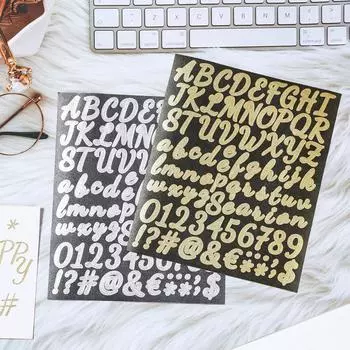 ABCDEFGHI
JKLMNOPQR
STUVWXYZ
abcdefghijk
lmnopqrstuv
wxyzSearion
0123456789
!?#@&€**;$
ABCDEF
JKLMN
STUV
abcde
lmno
wxyz
012
!?#@&€**;$
PPY
#